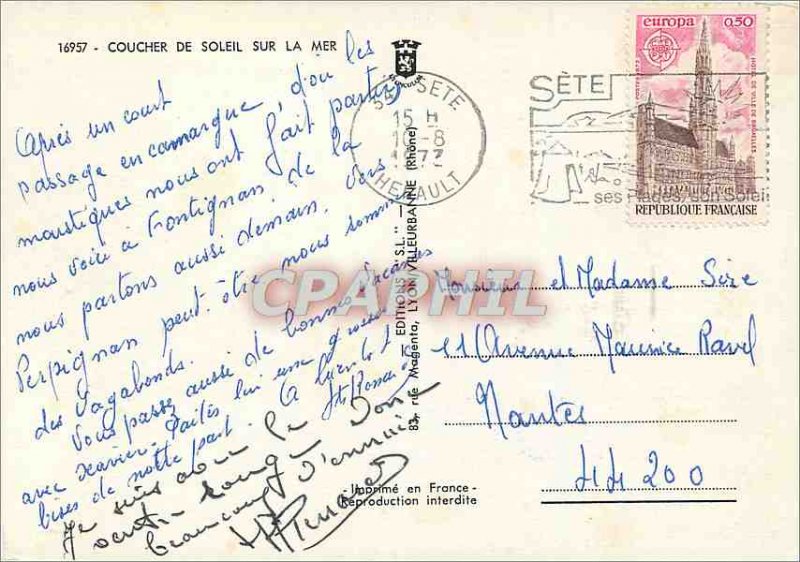 16957 - COUCHER DE SOLEIL SUR LA MER
Après un court
passage en camargue d'où les
moustiques nous ont fait partir,
nous voici à Frontignan de là
nous partons aussi demain. Vers
Perpignan peut-être nous sommes
des vagabonds.
Vous passez aussi de bonnes vacances
avec Xavier. Faites lui une grosse
bises de notre part. A bientôt
Je suis
beaucoup
EDITIONS "S.L." -
83, rue Magenta, LYON-VILLEURBANNE (Rhône)
34 SETE
15 H
-8
HERAULT
SÈTE
ses Plages, son Soleil
europa 0,50
POSTES 1973
HOTEL DE VILLE DE BRUXELLES
REPUBLIQUE FRANÇAISE
Monsieur et Madame Sire
11 Avenue Maurice Ravel
Nantes
44200
- Imprimé en France -
Reproduction interdite
CPAPHIL